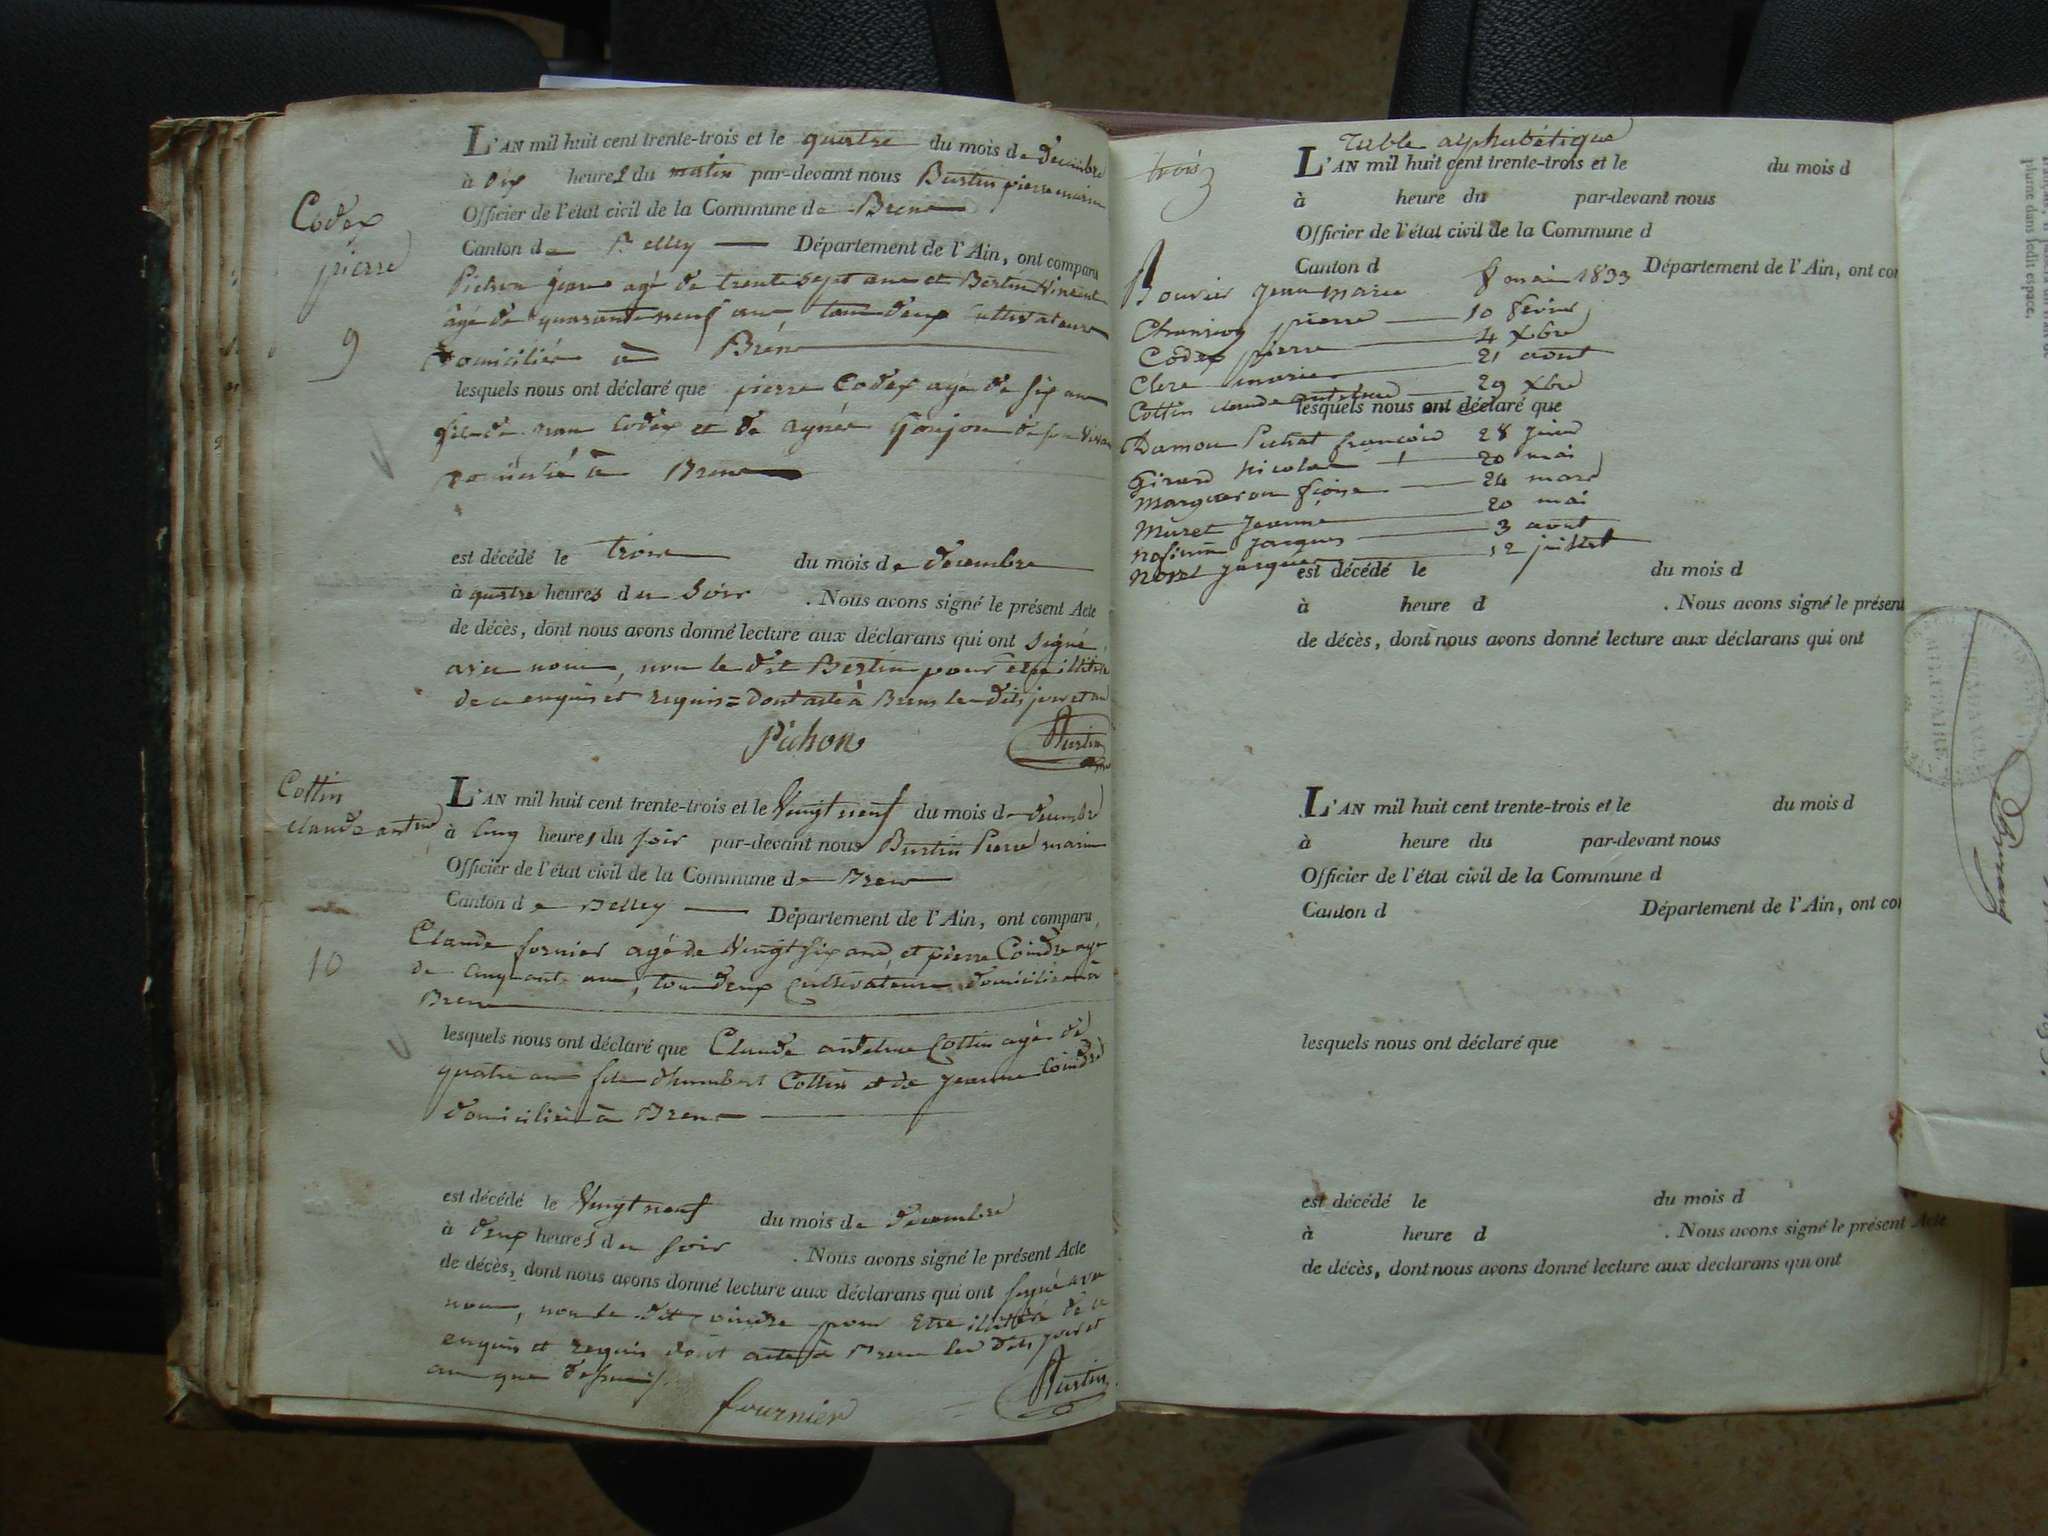 L'AN mil huit cent trente-trois et le quatre du mois de decembre
à dix heures du matin par-devant nous Burtin pierre maire
Officier de l'état civil de la Commune de Brens
Codex
pierre
9
Canton de Belley Département de l'Ain, ont comparu
Pichon agé de trente sept ans et Bertin Vincent
agé de quarante neuf ans tous deux cultivateurs
domiciliés à Brens
lesquels nous ont déclaré que pierre Codex agé de six ans
fils de Codex et de agnés Goujon
à Brens
est décédé le trois du mois de decembre
à quatre heures du soir . Nous avons signé le présent Acte
de décès, dont nous avons donné lecture aux déclarans qui ont signé
avec nous, non le dit Bertin pour
de ce enquis et requis = dont acte à Brens les dits jour et an
Pichon Burtin
Cottin
claude antme
10
L'AN mil huit cent trente-trois et le Vingt neuf du mois de decembre
à cinq heures du soir par-devant nous Burtin Pierre maire
Officier de l'état civil de la Commune de Brens
Canton de Belley Département de l'Ain, ont comparu,
Claude fornier agé de Vingt six ans, et pierre Coindre agé
de cinquante ans, tous deux cultivateurs domiciliés à
Brens
lesquels nous ont déclaré que Claude antelme Cottin agé de
quatre ans fils d'humbert Cottin et de jeanne Coindre
domiciliés à Brens
est décédé le Vingt neuf du mois de decembre
à deux heures du soir . Nous avons signé le présent Acte
de décès, dont nous avons donné lecture aux déclarans qui ont signé avec
nous, non le dit coindre pour etre illitéré de ce
enquis et requis dont acte à Brens les dits jour et
an que dessus
fournier Burtin
trois
Table alphabétique
L'AN mil huit cent trente-trois et le du mois d
à heure du par-devant nous
Officier de l'état civil de la Commune d
Canton d Département de l'Ain, ont co
Bouvier jean marie 8 mai 1833
pierre 10 fevrier
Codex pierre 4 Xbre
Clere marie 21 aout
Cottin claude antelme 29 Xbre
lesquels nous ont déclaré que
Damou Pichat françois 28 juin
Girard nicolas 20 mai
Margueron fçoise 24 mars
Muret jeanne 20 mai
jacques 3 aout
jacques 12 juillet
est décédé le du mois d
à heure d . Nous avons signé le présent
de décès, dont nous avons donné lecture aux déclarans qui ont
L'AN mil huit cent trente-trois et le du mois d
à heure du par-devant nous
Officier de l'état civil de la Commune d
Canton d Département de l'Ain, ont co
lesquels nous ont déclaré que
est décédé le du mois d
à heure d . Nous avons signé le présent Acte
de décès, dont nous avons donné lecture aux déclarans qui ont
plume dans ledit espace.